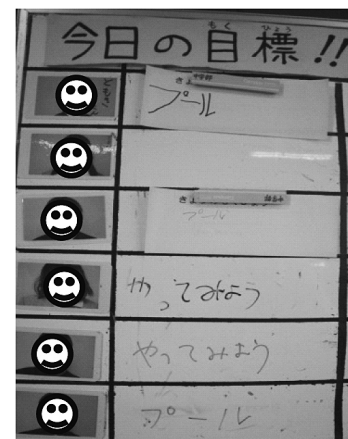 今日の目標!!
プール
プール
やってみよう
やってみよう
プール